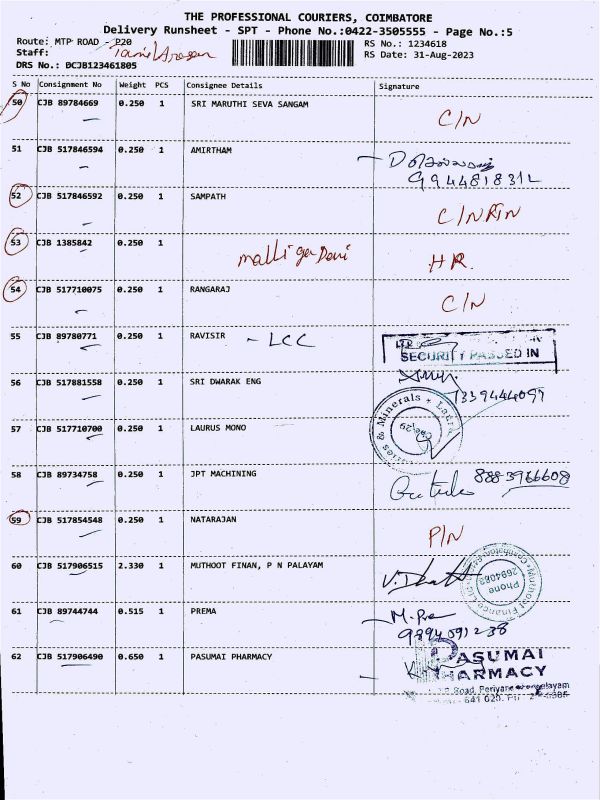 THE PROFESSIONAL COURIERS, COIMBATORE
Delivery Runsheet - SPT - Phone No.:0422-3505555 - Page No.:5
Route: MTP ROAD - P20
RS No.: 1234618
Staff:
RS Date: 31-Aug-2023
DRS No.: DCJB123461805
S No Consignment No Weight PCS Consignee Details Signature
50 CJB 89784669 0.250 1 SRI MARUTHI SEVA SANGAM C/N
51 CJB 517846594 0.250 1 AMIRTHAM
9944818312
52 CJB 517846592 0.250 1 SAMPATH C/N
53 CJB 1385842 0.250 1 malliga Devi HR.
54 CJB 517710075 0.250 1 RANGARAJ C/N
55 CJB 89780771 0.250 1 RAVISIR - LCC
SECURITY PASSED IN
56 CJB 517881558 0.250 1 SRI DWARAK ENG 7339444097
57 CJB 517710700 0.250 1 LAURUS MONO
& Minerals
58 CJB 89734758 0.250 1 JPT MACHINING 8883966608
59 CJB 517854548 0.250 1 NATARAJAN P/N
60 CJB 517906515 2.330 1 MUTHOOT FINAN, P N PALAYAM
Phone
2694083
61 CJB 89744744 0.515 1 PREMA
9894091238
62 CJB 517906490 0.650 1 PASUMAI PHARMACY
PASUMAI
PHARMACY